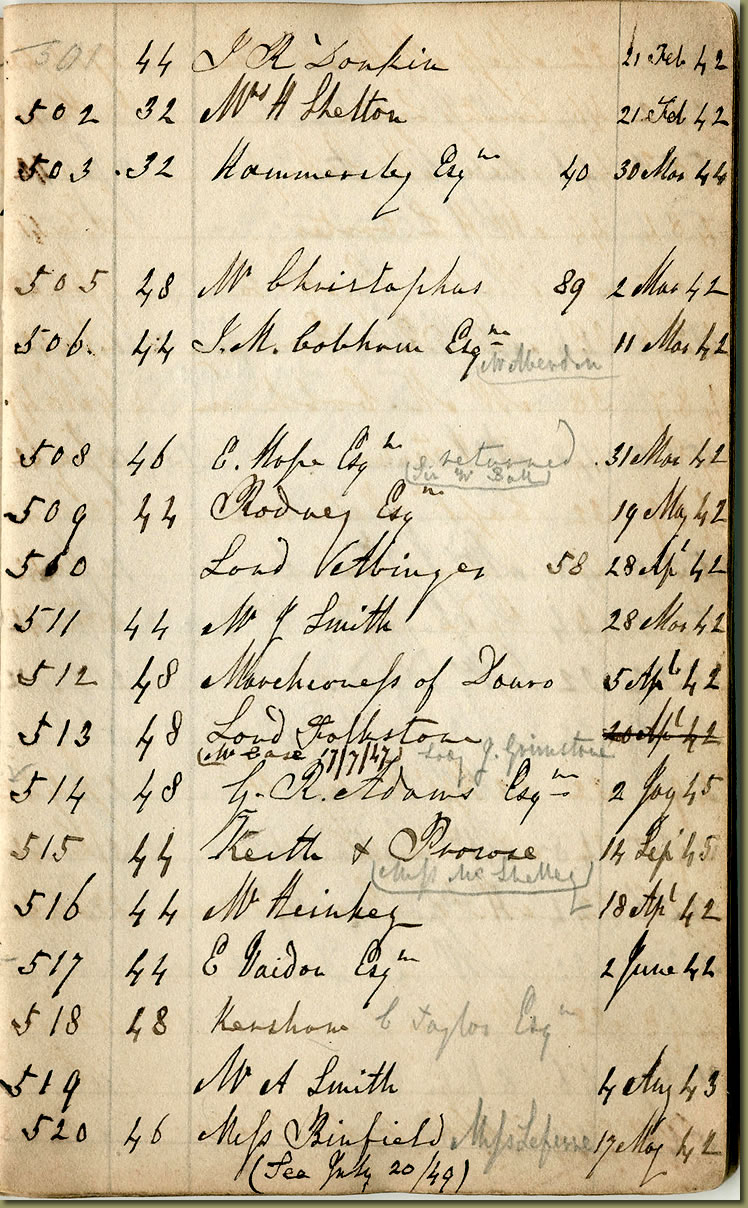 501 44 J R Donkin 21 Feb 42
502 32 Mrs H Shelton 21 Feb 42
503 32 Hammersley Esqre 40 30 Mar 44
505 48 Mr Christophus 89 2 Mar 42
506 44 J. M. Cobham Esqre 11 Mar 42
508 46 E. Hope Esqre returned 31 Mar 42
509 44 Rodney Esqre 19 May 42
510 Lord 58 28 Apl 42
511 44 Mr J Smith 28 Mar 42
512 48 Marchioness of Douro 5 Apl 42
513 48 Lord Folkstone 20 Apl 42
(Mr Case 17/7/47) Lady J. Grimstone
514 48 G. R. Adams Esqre 2 45
515 44 Keith & Prowse 14 Sep 45
(Miss Mc Shelley)
516 44 Mr Heinkey 18 Apl 42
517 44 E Vaidon Esqre 2 June 42
518 48 Kershaw C Taylor Esqre
519 Mr A Smith 4 Aug 43
520 46 Miss Binfield Miss 17 May 42
(See July 20/49)